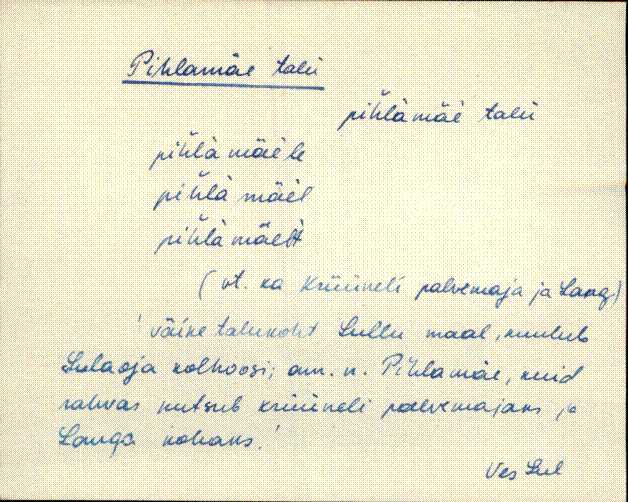 Pihlamäe talu
pìhlàmäè talu
pìhlà mäèle
pìhlà mäèl
pìhlà mäelt
(vt. ka Krüüneli palvemaja ja Lang)
' väike talukoht Sullu maal, kuulub
Sulaoja kolhoosi; am. n. Pihlamäe, kuid
rahvas kutsub krüüneli palvemajaks ja
Langa kohaks.'
Ves Sul